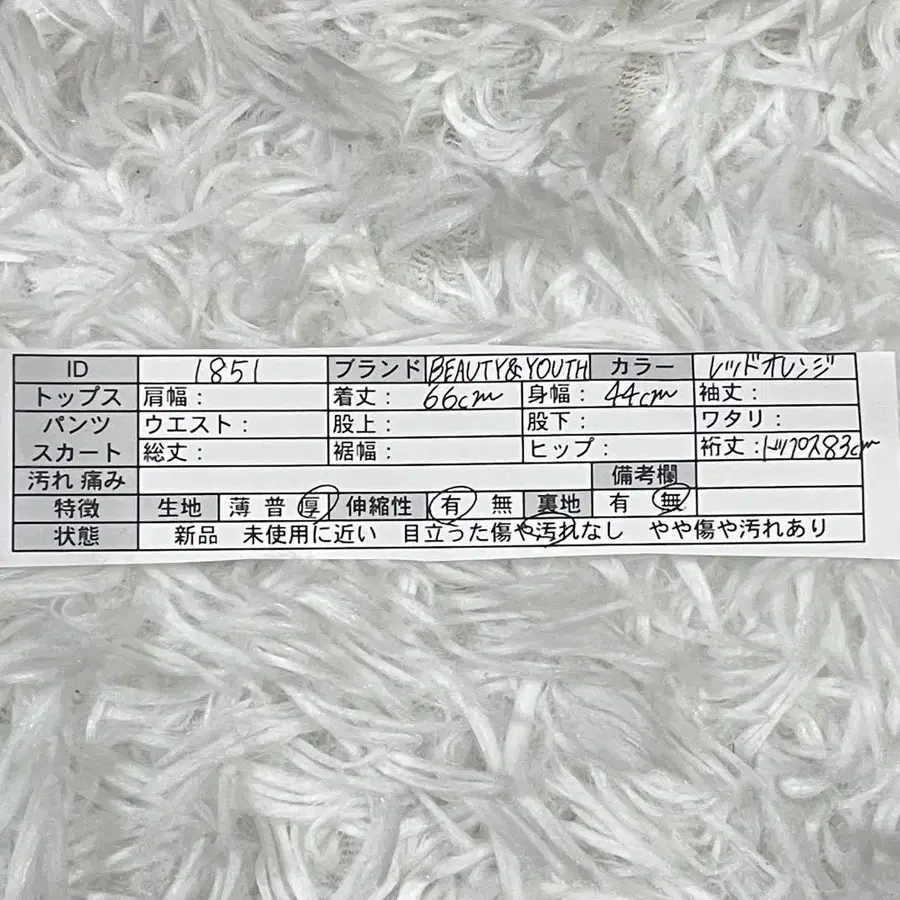 ID 1851 ブランド BEAUTY&YOUTH カラー レッドオレンジ
トップス 肩幅: 着丈: 66cm 身幅: 44cm 袖丈:
パンツ ウエスト: 股上: 股下: ワタリ:
スカート 総丈: 裾幅: ヒップ: 裄丈:トップス83cm
汚れ 痛み 備考欄
特徴 生地 薄 普 厚 伸縮性 有 無 裏地 有 無
状態 新品 未使用に近い 目立った傷や汚れなし やや傷や汚れあり